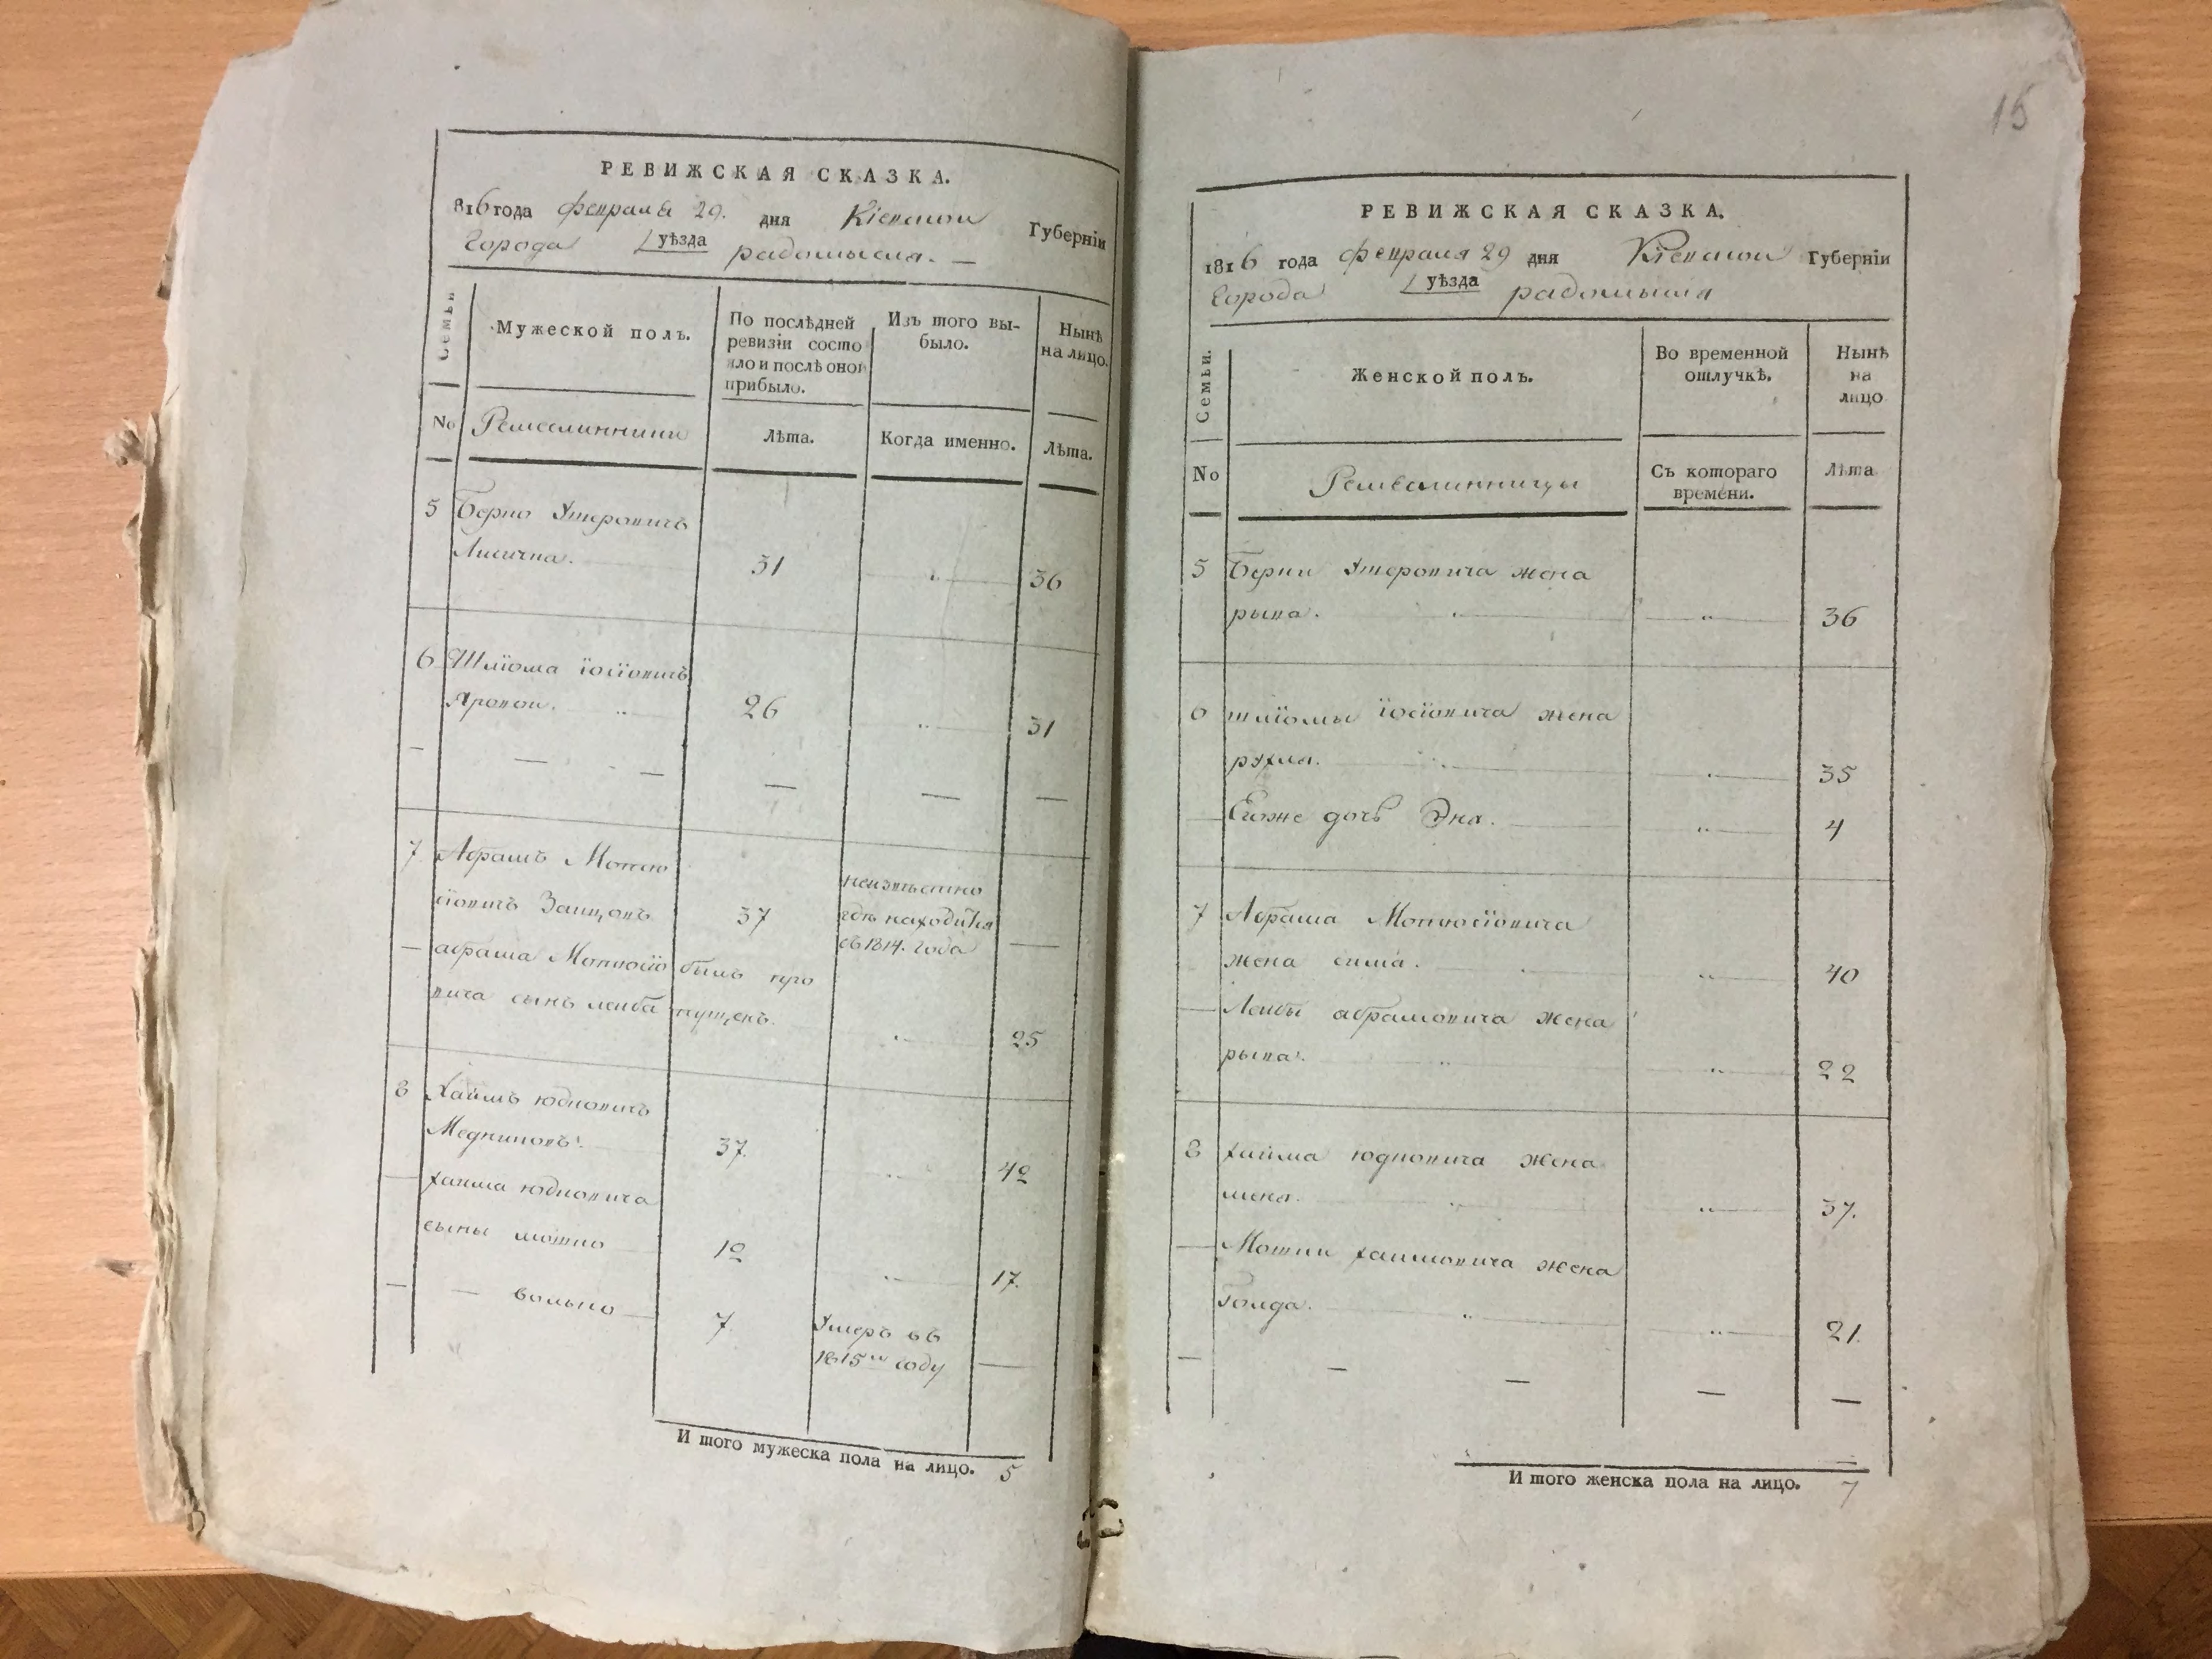 РЕВИЖСКАЯ СКАЗКА.
816 года февраля 29. дня Кіевской Губерніи
Города уѣзда радомысля. —
Семьи
Мужеской полъ.
По послѣдней ревизіи состо
яло и послѣ оной
прибыло.
Изъ того вы-
было.
Нынѣ
на лицо.
No Ремеслинники Лѣта. Когда именно. Лѣта.
5 Берко Умеровичъ
31 36
6 Шліома іосіовичъ
Яровой. 26 31
— — — — — —
7. Абрамъ Мотею
сіовичъ Заицовъ 37 неизвѣстно
гдѣ находится
съ 1814. года —
— абрама Мотіюсіо былъ про
вича сынъ лейба пущенъ. 25
8 Хаимъ юдковичъ
Медниковъ. 37. 42
— хаима юдковича
сыны мошко 12 17.
— — волько 7. Умеръ въ
1815м году —
И того мужеска пола на лицо. 5
15
РЕВИЖСКАЯ СКАЗКА.
1816 года февраля 29 дня Кіевской Губерніи
Города уѣзда радомысля
Семьи.
Женской полъ.
Во временной
отлучкѣ.
Нынѣ
на
лицо
No Ремеслинницы Съ котораго
времени. Лѣта
5 Берки Умеровича жена
рыва. 36
6 шліомы іосіовича жена
рухля. 35
— Егоже дочь Эня. 4
7 Абрама Мотіюсіовича
жена сима. 40
— Лейбы абрамовича жена
рыва. 22
8 хаима юдковича жена
37.
— Мошки хаимовича жена
Голда. 21.
— — — — —
И того женска пола на лицо. 7